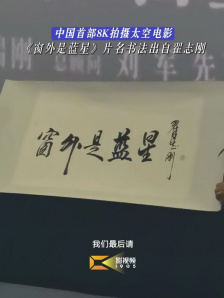 中国首部8K拍摄太空电影
《窗外是蓝星》片名书法出自翟志刚
窗外是蓝星
翟志刚
我们最后请
影视频
1905